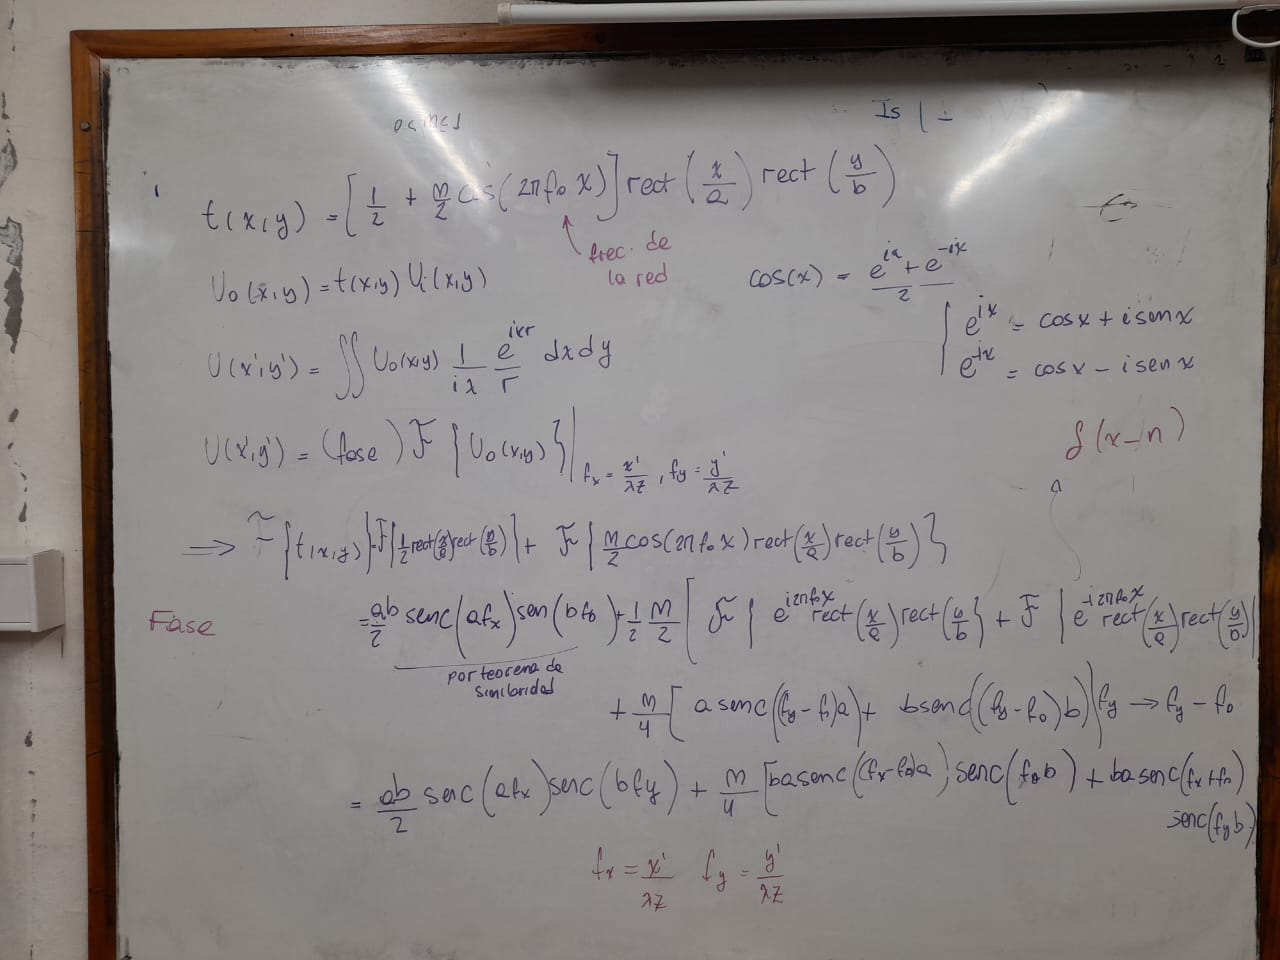 Is ( 1
t(x,y) = [1/2 + m/2 cos(2πf₀ x)] rect(x/a) rect(y/b)
frec. de
la red
U₀(x,y) = t(x,y) Uᵢ(x,y)
cos(x) = (e^{ix} + e^{-ix})/2
e^{ix} = cosx + i senx
e^{-ix} = cosx - i senx
U(x',y') = ∬ U₀(x,y) 1/(iλ) e^{ikr}/r dxdy
δ(x-n)
U(x',y') = (fase) F{U₀(x,y)}|fx = x'/λz, fy = y'/λz
⟹ F{t(x,y)} = F{1/2 rect(x/a) rect(y/b)} + F{m/2 cos(2πf₀ x) rect(x/a) rect(y/b)}
Fase
= ab/2 senc(afx) sen(bf₀) + 1/2 m/2 [F{e^{i2πf₀x} rect(x/a) rect(y/b)} + F{e^{-i2πf₀x} rect(x/a) rect(y/b)}
por teorema de
similaridad
+ m/4 [a senc((fy - f₀)a) + b senc((fy - f₀)b)] fy → fy - f₀
= ab/2 senc(afx) senc(bfy) + m/4 [ba senc((fx-f₀)a) senc(fyb) + ba senc(fx+f₀)
senc(fyb)
fx = x'/λz fy = y'/λz